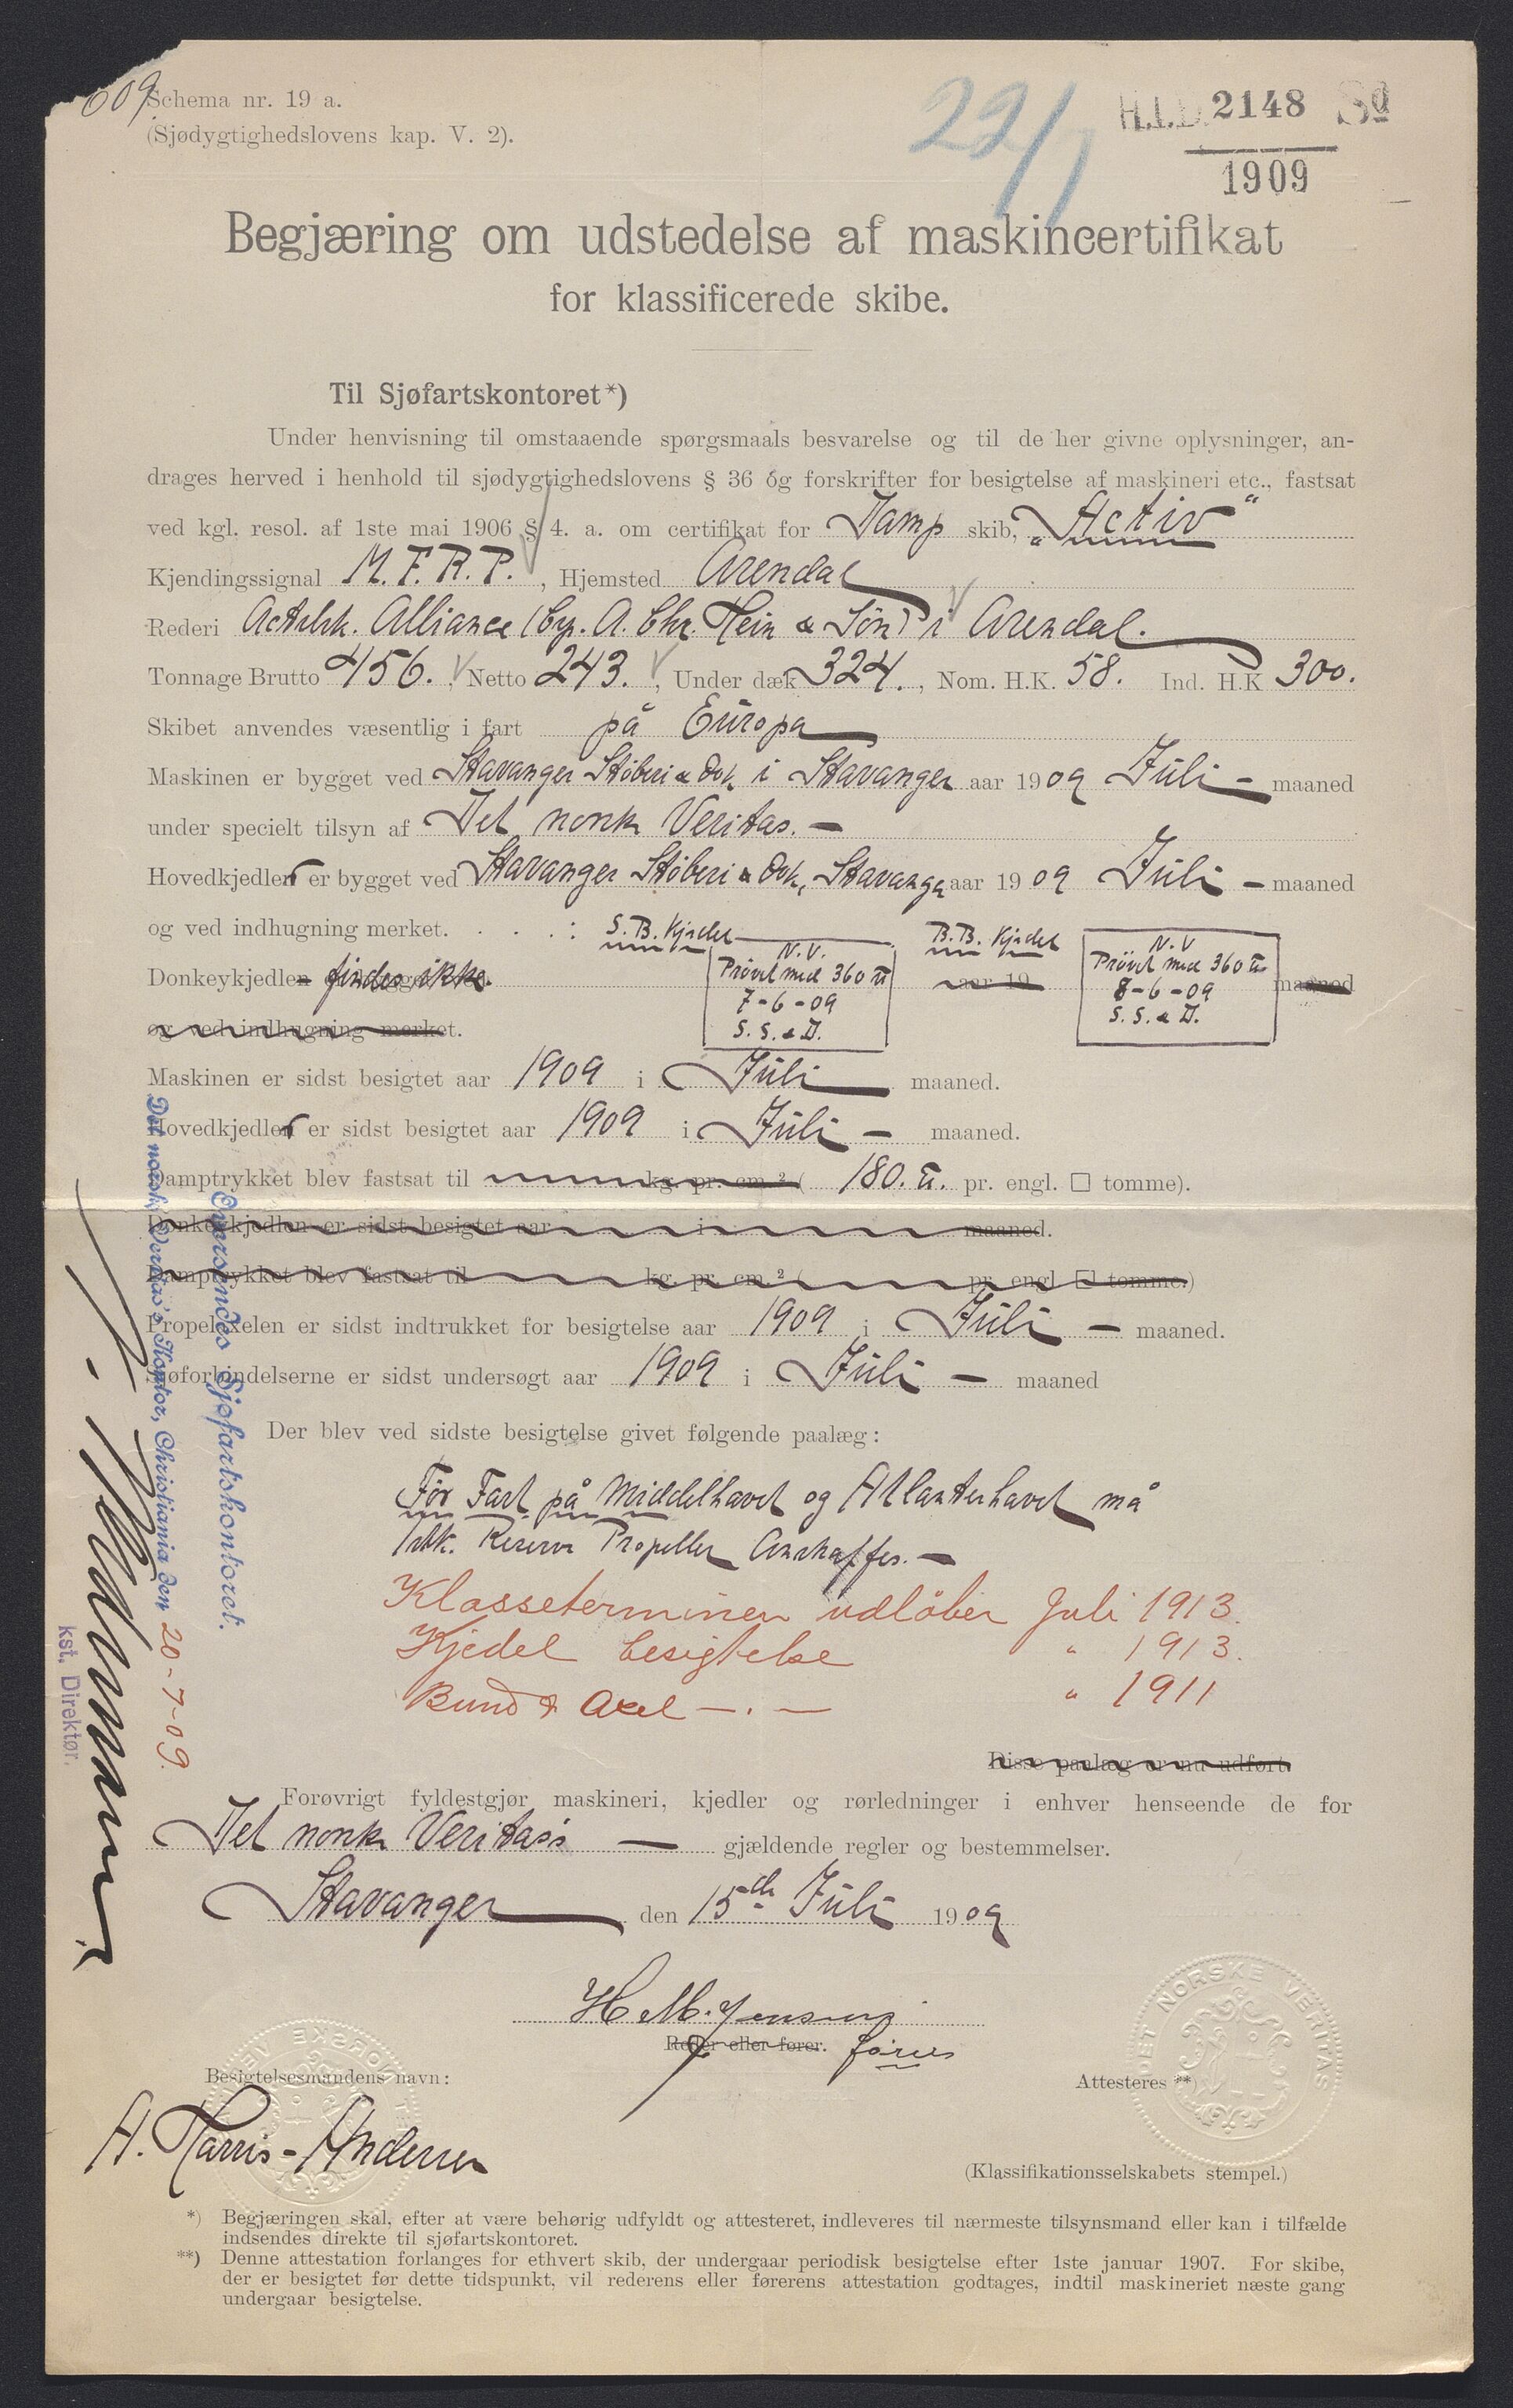 609
Schema nr. 19 a.
(Sjødygtighedslovens kap. V. 2).
22/7
H.I.D. 2148 Sd
1909
Begjæring om udstedelse af maskincertifikat
for klassificerede skibe.
Til Sjøfartskontoret*)
Under henvisning til omstaaende spørgsmaals besvarelse og til de her givne oplysninger, an-
drages herved i henhold til sjødygtighedslovens § 36 og forskrifter for besigtelse af maskineri etc., fastsat
ved kgl. resol. af 1ste mai 1906 § 4. a. om certifikat for Damp skib, „Activ“
Kjendingssignal M.F.R.P., Hjemsted Arendal
Rederi Actslsk. Alliance (Csp. A. Chr. Hein & Søn) i Arendal.
Tonnage Brutto 456., Netto 243., Under dæk 324., Nom. H.K. 58. Ind. H.K 300.
Skibet anvendes væsentlig i fart på Europa
Maskinen er bygget ved Stavanger Støberi & Dok i Stavanger aar 1909 Juli - maaned
under specielt tilsyn af Det norsk Veritas. -
Hovedkjedler er bygget ved Stavanger Støberi & Dok, Stavanger aar 1909 Juli - maaned
og ved indhugning merket. . . . : S.B. Kjedel B.B. Kjedel
N.V.
Prövet med 360 ℔
7-6-09
S. S. & D.
N.V
Prövet med 360 ℔
8-6-09
S. S. & D.
Donkeykjedlen findes ikke. aar 19 maaned
og ved indhugning merket.
Maskinen er sidst besigtet aar 1909 i Juli maaned.
Hovedkjedler er sidst besigtet aar 1909 i Juli - maaned.
Damptrykket blev fastsat til kg. pr. cm.² ( 180. ℔. pr. engl. □ tomme).
Donkeykjedlen er sidst besigtet aar i maaned.
Damptrykket blev fastsat til kg. pr. cm.² ( pr. engl □ tomme.)
Propelaxelen er sidst indtrukket for besigtelse aar 1909 i Juli - maaned.
Sjøforbindelserne er sidst undersøgt aar 1909 i Juli - maaned
Der blev ved sidste besigtelse givet følgende paalæg:
För Fart på Middelhavet og Atlanterhavet må
1 stk. Reserve Propeller Anskaffes. -
Klasseterminen udløber Juli 1913.
Kjedel besigtelse " 1913.
Bund & Axel -.- " 1911
Disse paalæg er nu udført.
Forøvrigt fyldestgjør maskineri, kjedler og rørledninger i enhver henseende de for
Det norsk Veritas's - gjældende regler og bestemmelser.
Stavanger den 15de Juli 1909
H M. Jensen
Reder eller fører. förer
Besigtelsesmandens navn:
A. Harris-Andersen
Attesteres **)
DET NORSKE VERITAS
(Klassifikationsselskabets stempel.)
*) Begjæringen skal, efter at være behørig udfyldt og attesteret, indleveres til nærmeste tilsynsmand eller kan i tilfælde
indsendes direkte til sjøfartskontoret.
**) Denne attestation forlanges for ethvert skib, der undergaar periodisk besigtelse efter 1ste januar 1907. For skibe,
der er besigtet før dette tidspunkt, vil rederens eller førerens attestation godtages, indtil maskineriet næste gang
undergaar besigtelse.
Oversendes Sjøfartskontoret.
Det norske Veritas's Kontor, Christiania den 20-7-09.
kst. Direktør.